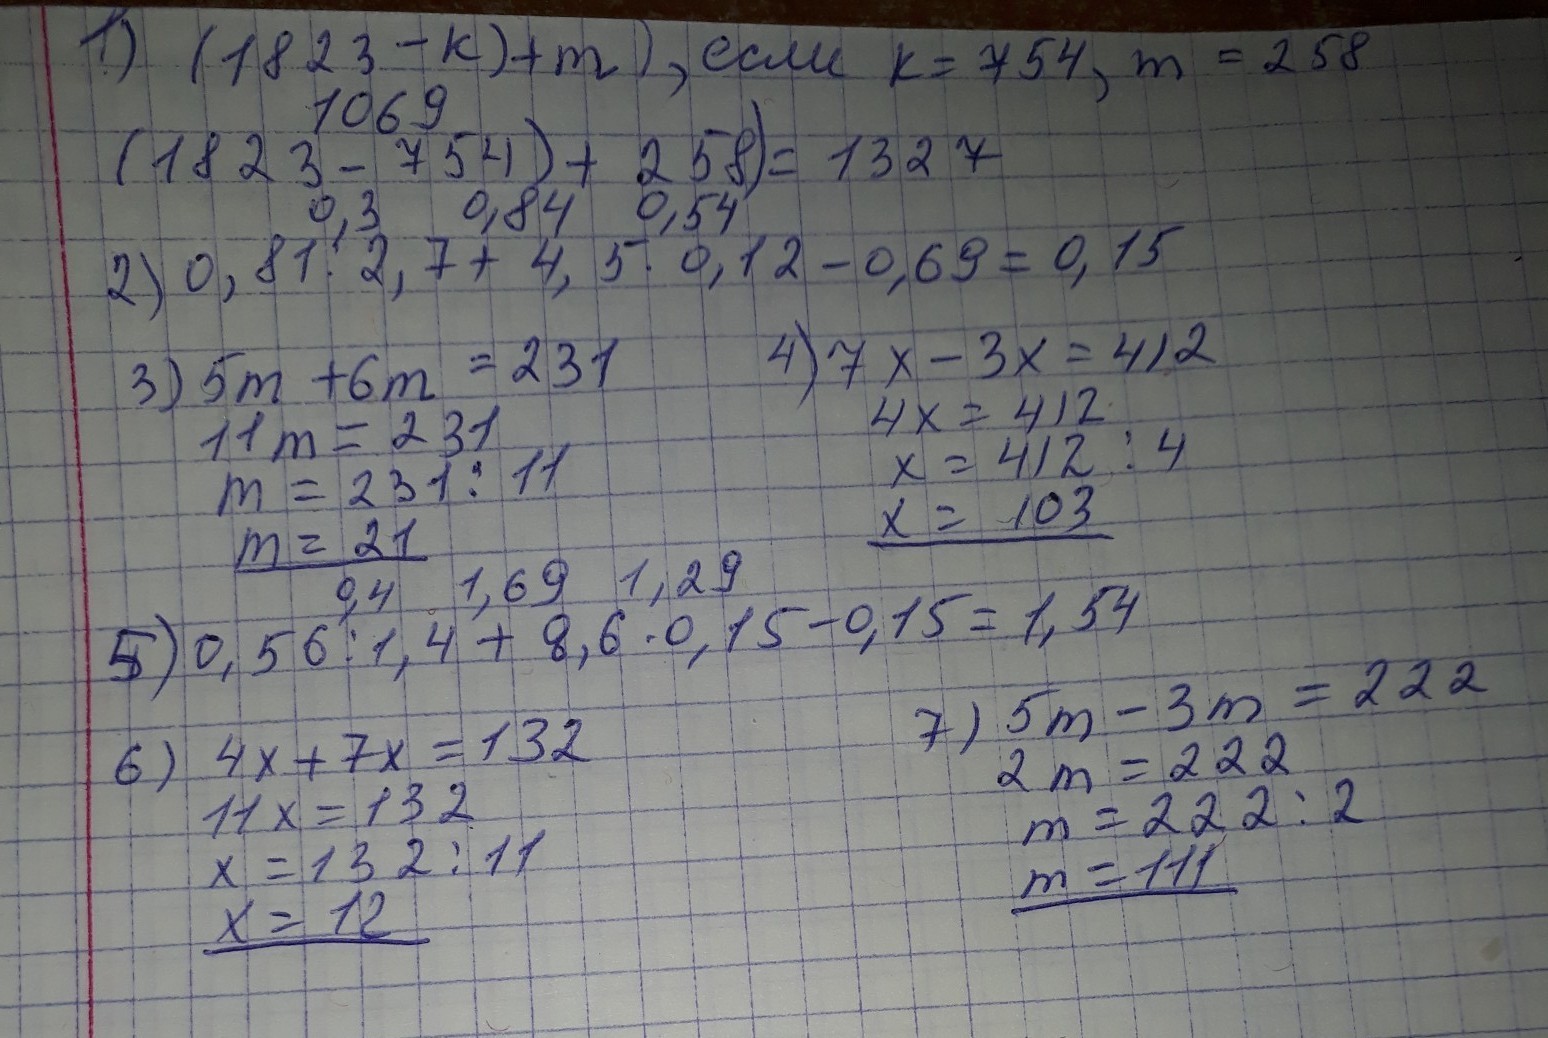 1) (1823-к)+m), если к=754, m=258
1069
(1823-754)+258)=1327
0,3 0,84 0,54
2) 0,81:2,7+4,5·0,12-0,69=0,15
3) 5m+6m=231
11m=231
m=231:11
m=21
4) 7x-3x=412
4x=412
x=412:4
x=103
0,4 1,69 1,29
5) 0,56:1,4+8,6·0,15-0,15=1,54
6) 4x+7x=132
11x=132
x=132:11
x=12
7) 5m-3m=222
2m=222
m=222:2
m=111